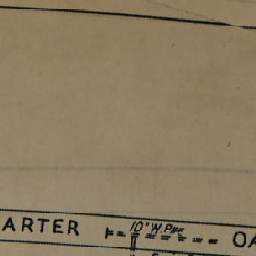 ARTER 10" W. Pipe OA